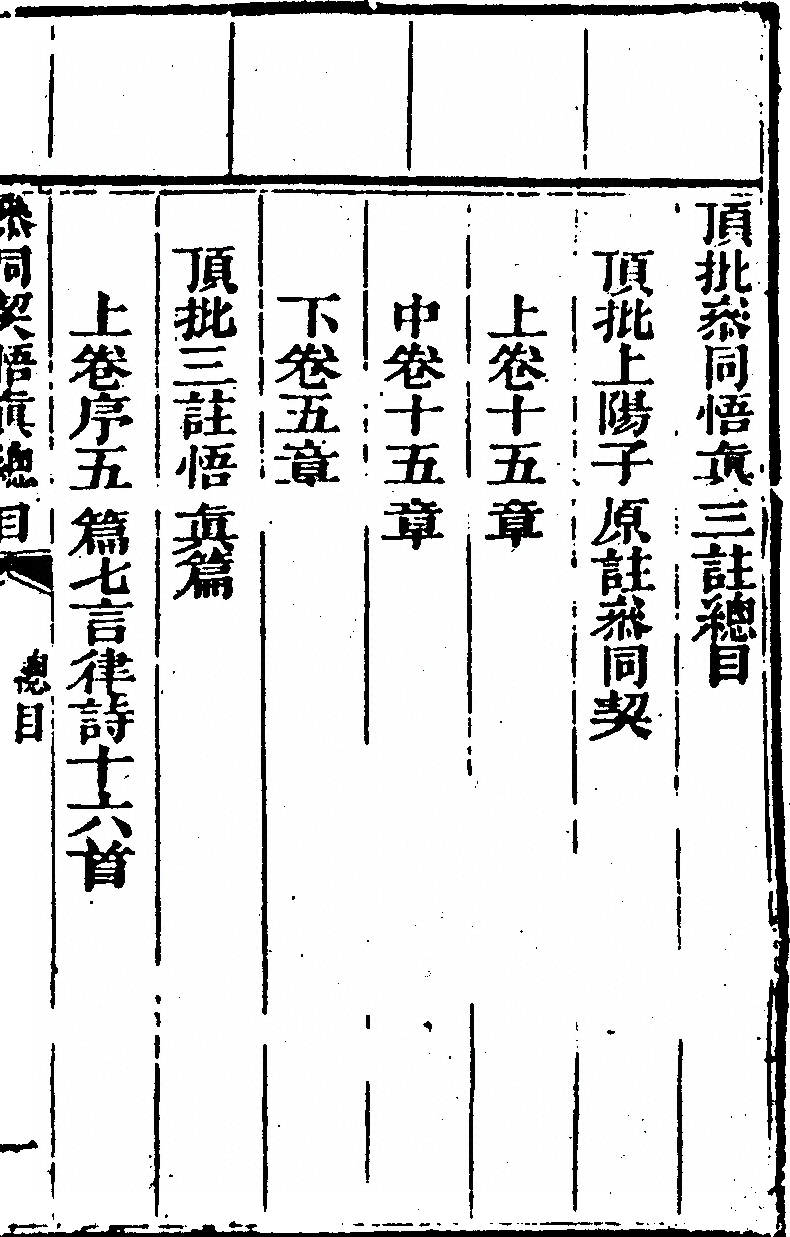 頂批叅同悟眞三註總目
頂批上陽子原註叅同契
上卷十五章
中卷十五章
下卷五章
頂批三註悟眞篇
上卷序五篇七言律詩十六首
叅同契悟眞總目
總目
一